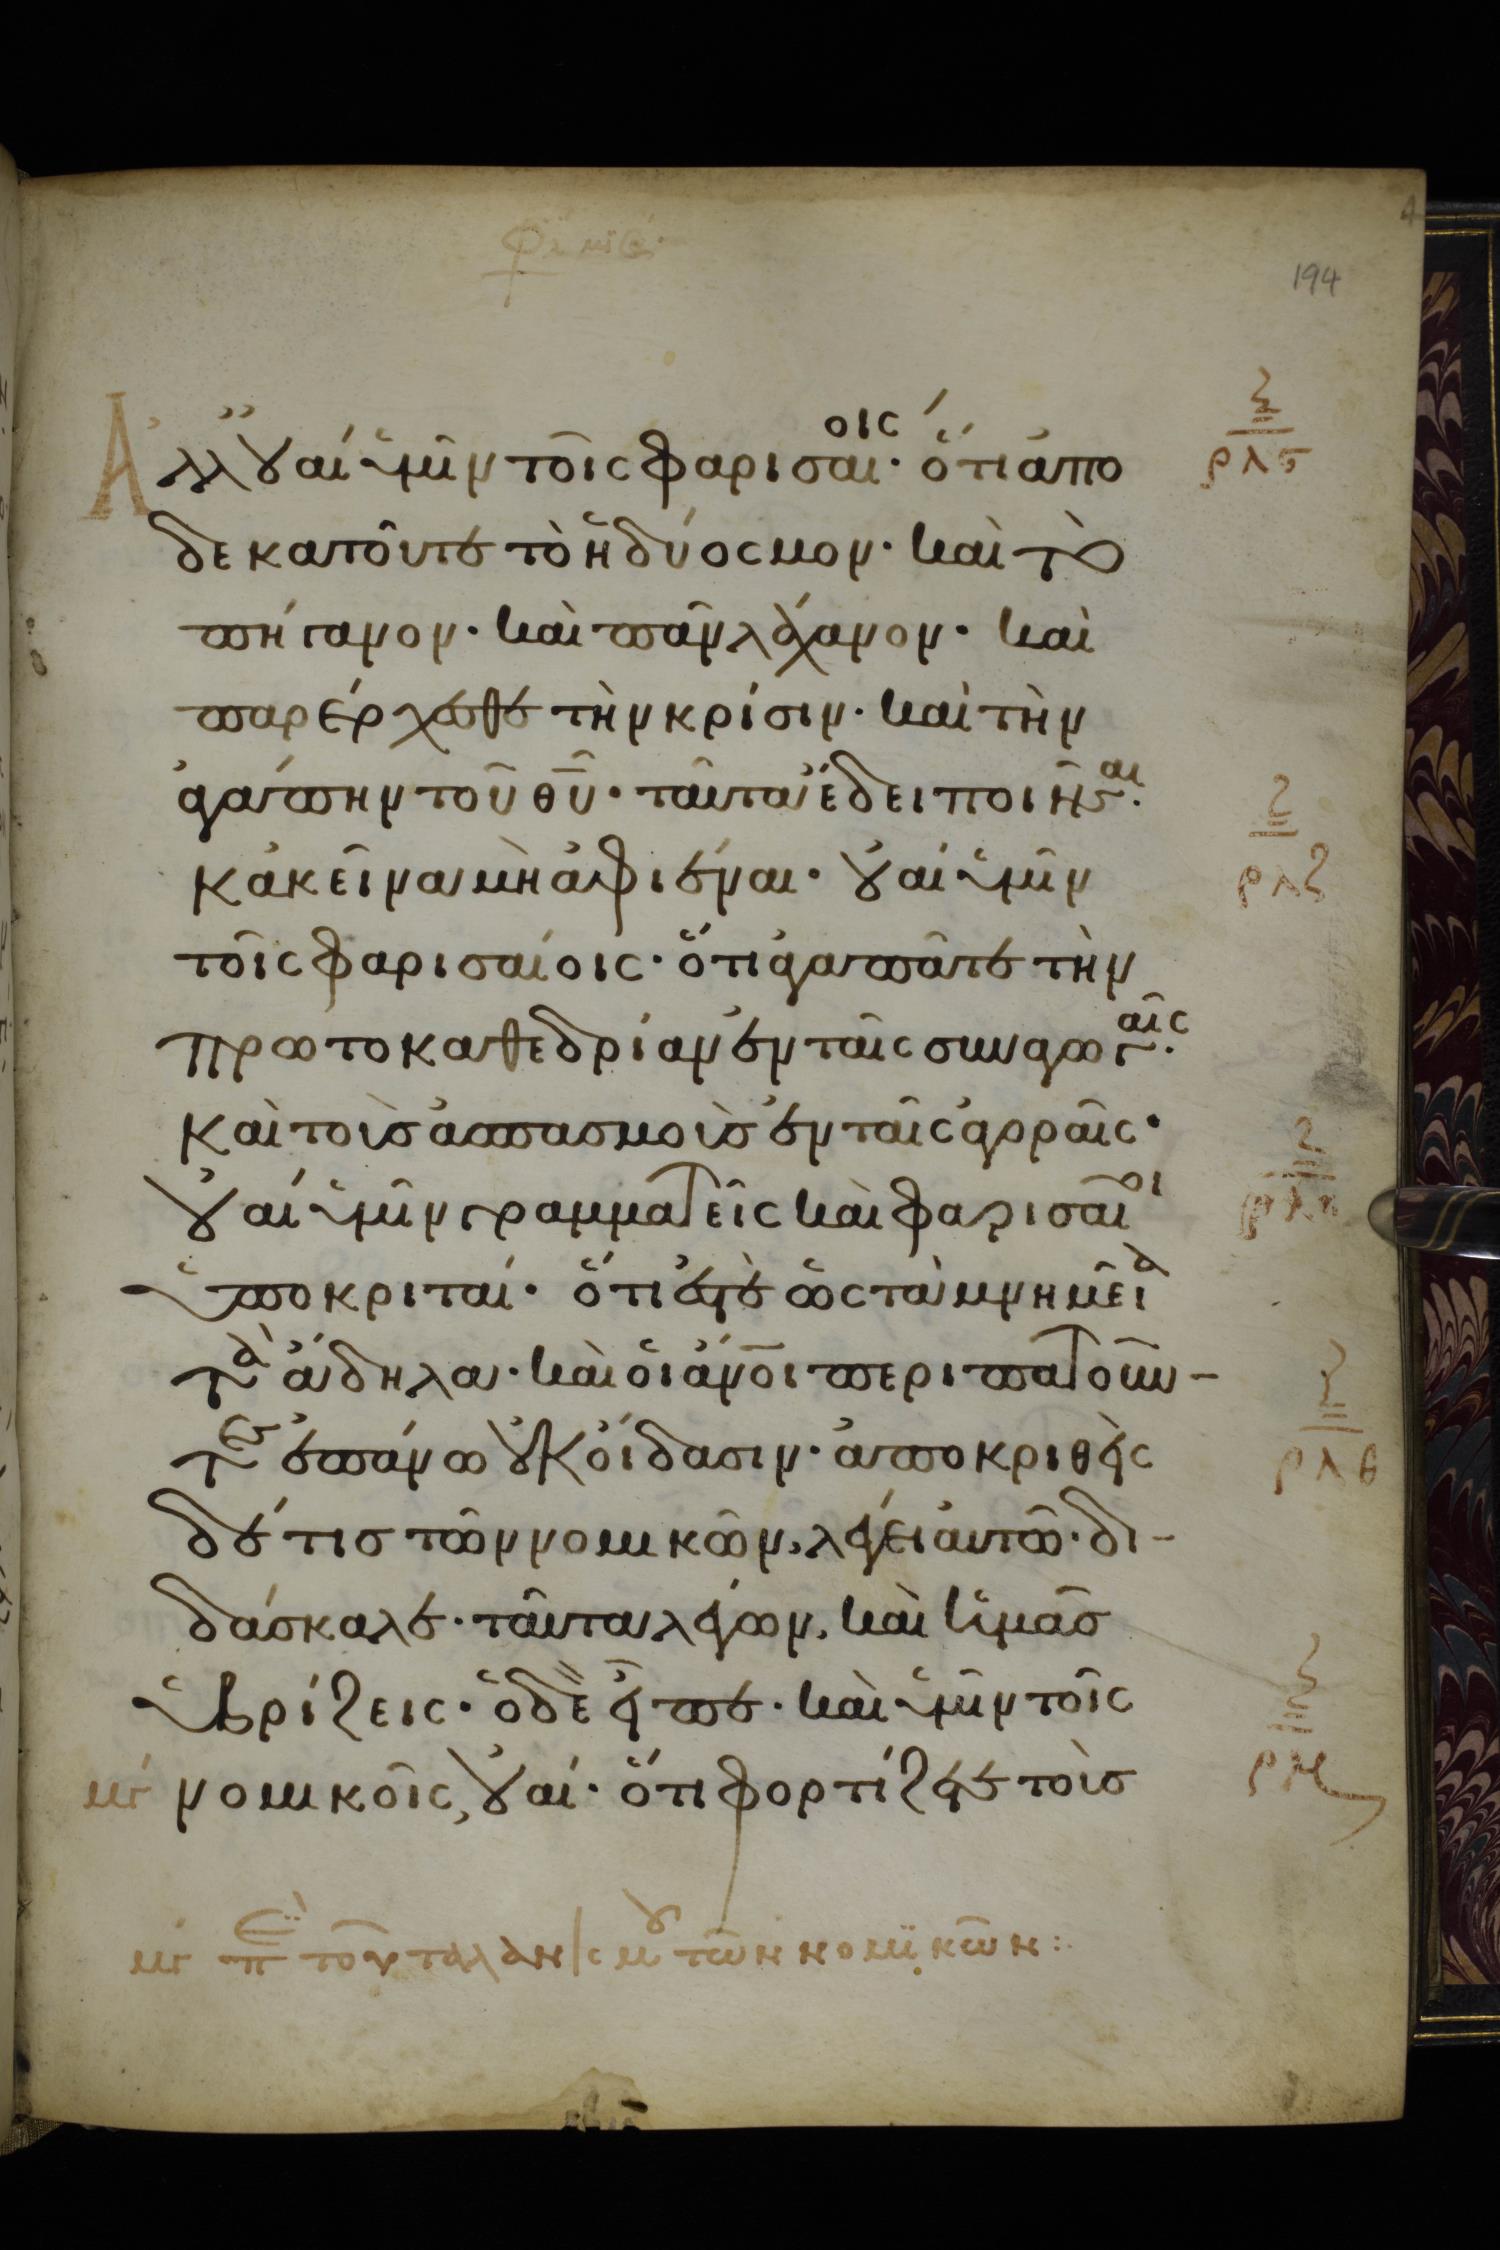 194
Ἀλλ' οὐαί ὑμῖν τοῖς φαρισαίοις· ὅτι ἀπο
δεκατοῦτε τὸ ἡδύοσμον· καὶ τὸ
πήγανον· καὶ πᾶν λάχανον· καὶ
παρέρχεσθε τὴν κρίσιν· καὶ τὴν
ἀγάπην τοῦ θῦ· ταῦτα ἔδει ποιῆσαι·
κἀκεῖνα μὴ ἀφιέναι· οὐαί ὑμῖν
τοῖς φαρισαίοις· ὅτι ἀγαπᾶτε τὴν
πρωτοκαθεδρίαν ἐν ταῖς συναγωγαῖς·
καὶ τοὺς ἀσπασμοὺς ἐν ταῖς ἀγοραῖς·
οὐαί ὑμῖν γραμματεῖς καὶ φαρισαῖοι
ὑποκριταί· ὅτι ἐστὲ ὡς τὰ μνημεῖα
τὰ ἄδηλα· καὶ οἱ ἄνοι περιπατοῦν-
τες ἐπάνω οὐκ οἴδασιν· ἀποκριθεὶς
δέ τις τῶν νομικῶν, λέγει αὐτῶ· δι-
δάσκαλε· ταῦτα λέγων, καὶ ἡμᾶς
ὑβρίζεις· ὁ δὲ εἶπε· καὶ ὑμῖν τοῖς
νομικοῖς, οὐαί· ὅτι φορτίζετε τοὺς
ρλς
ρλζ
ρλη
ρλθ
ρμ